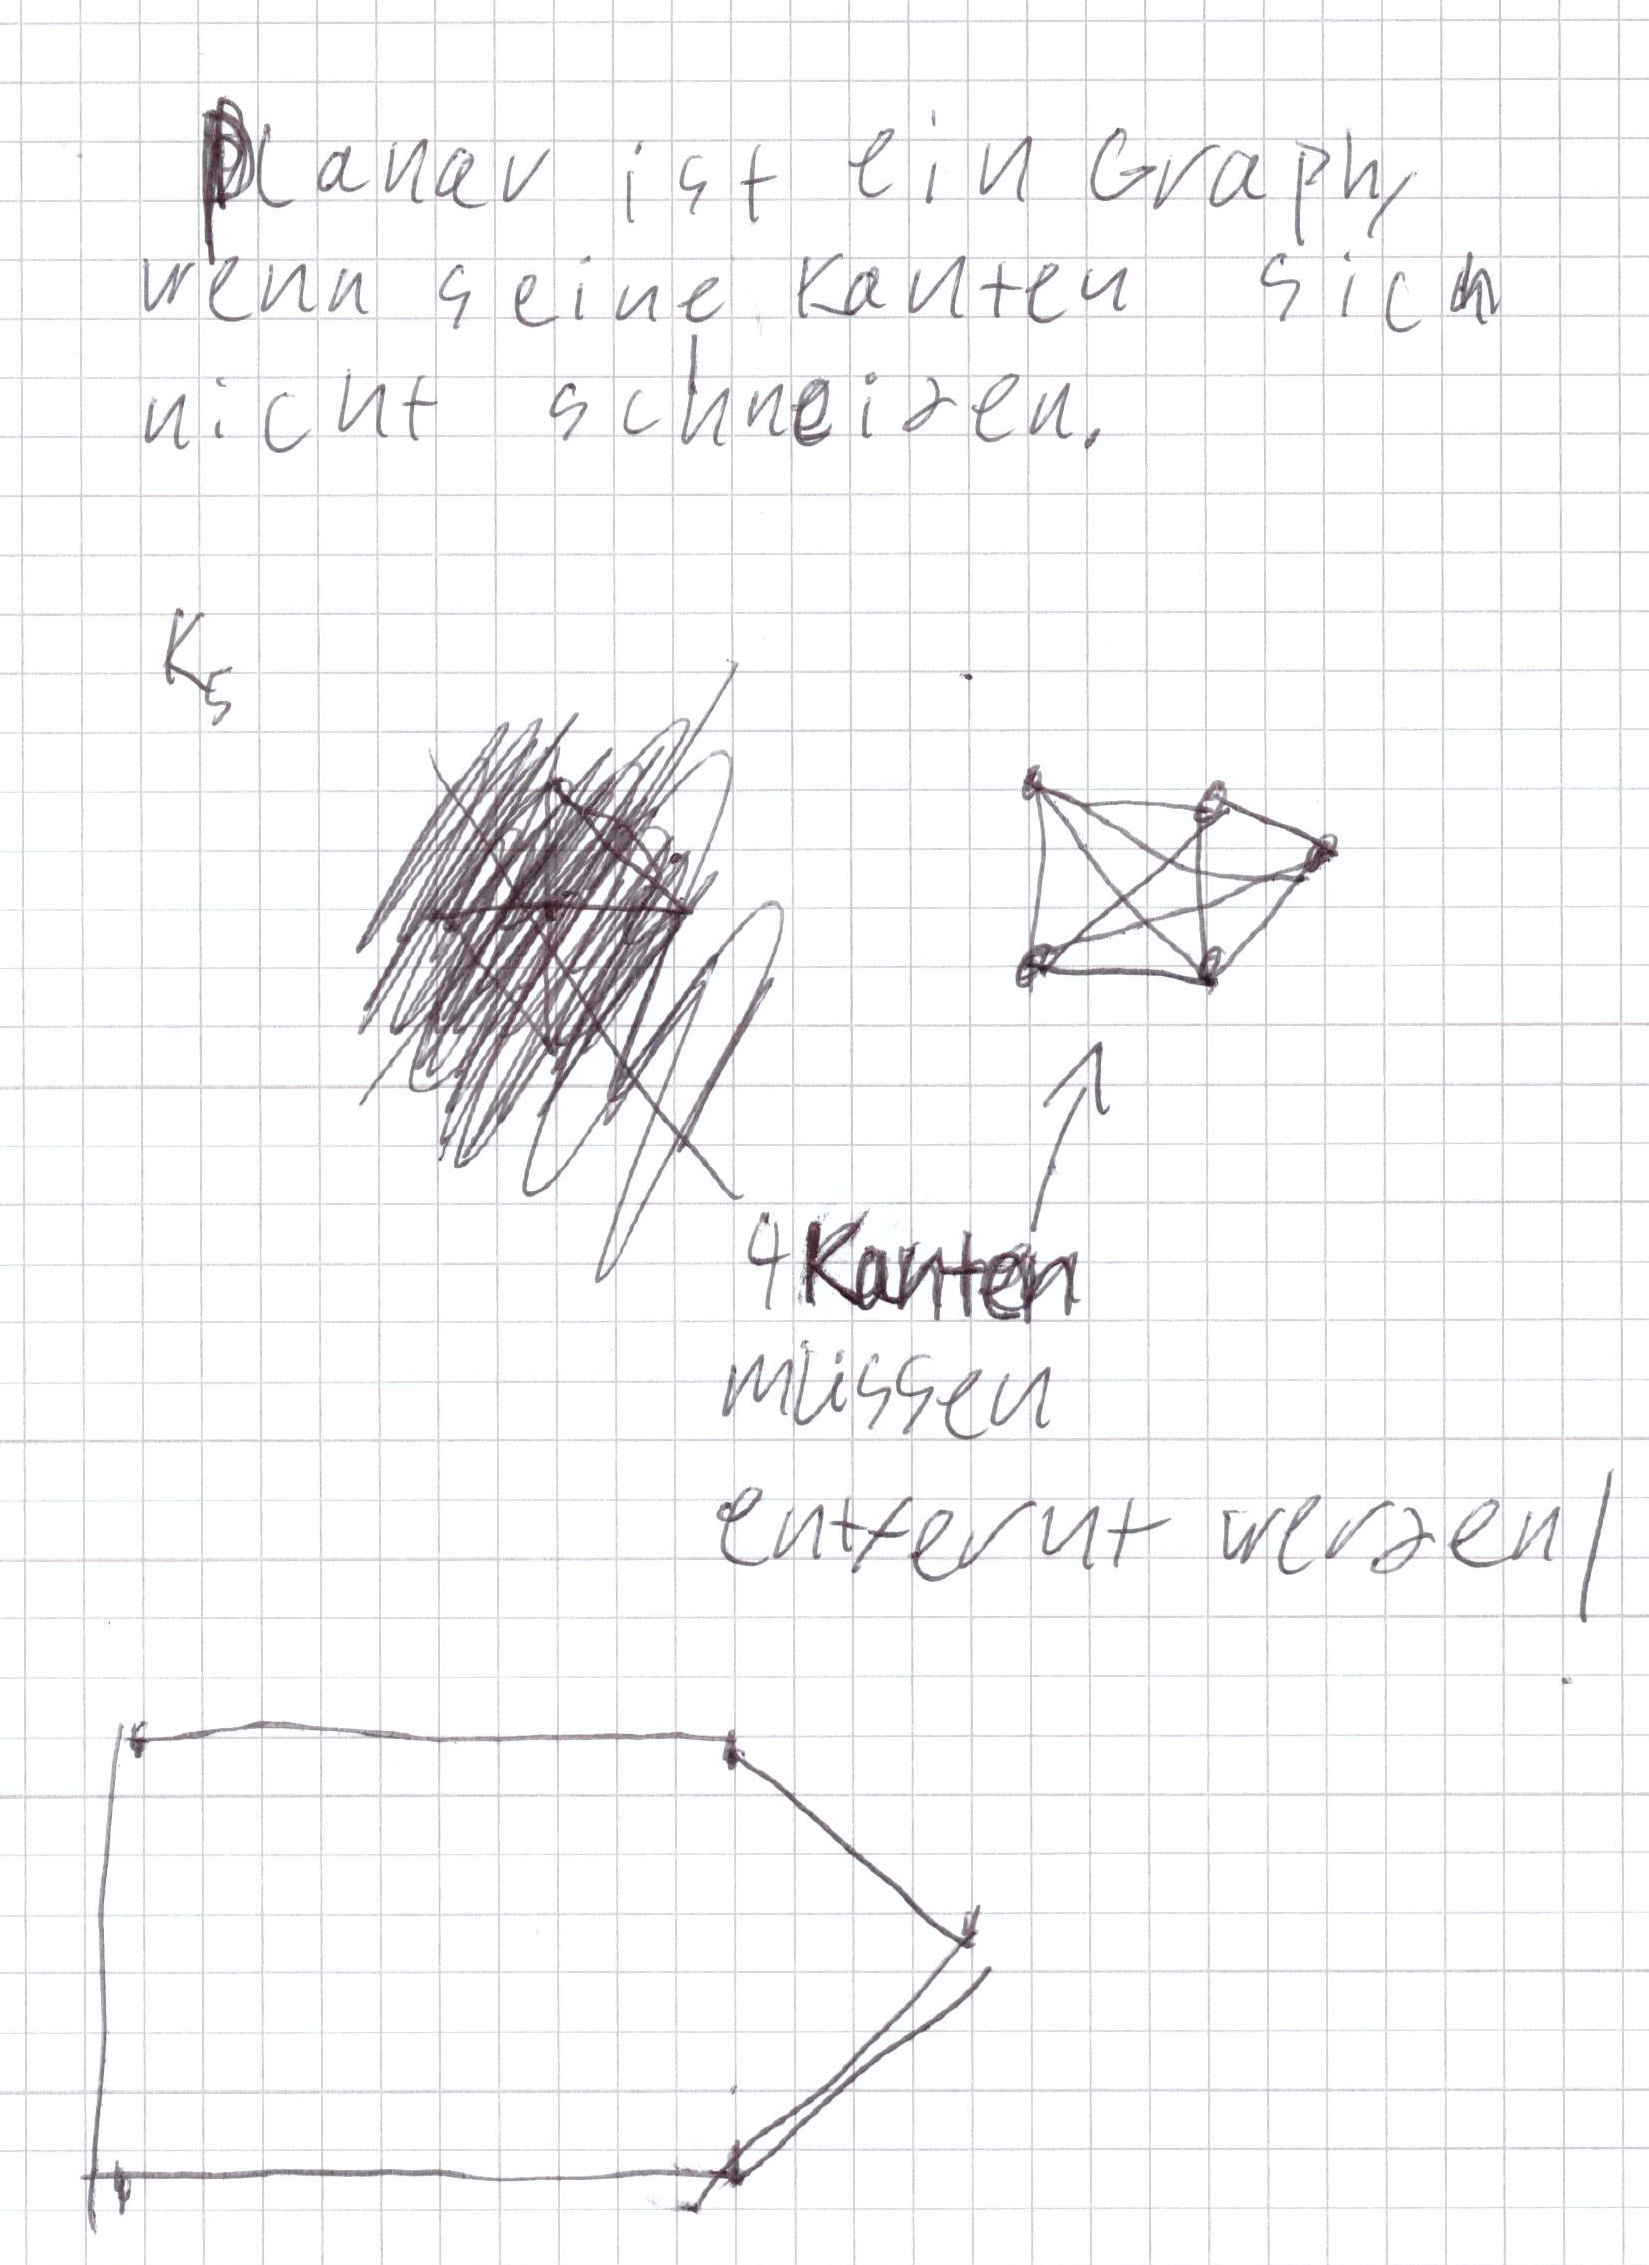 Planar ist ein Graph,
wenn seine Kanten sich
nicht schneiden.
K5
4 Kanten
müssen
entfernt werden!